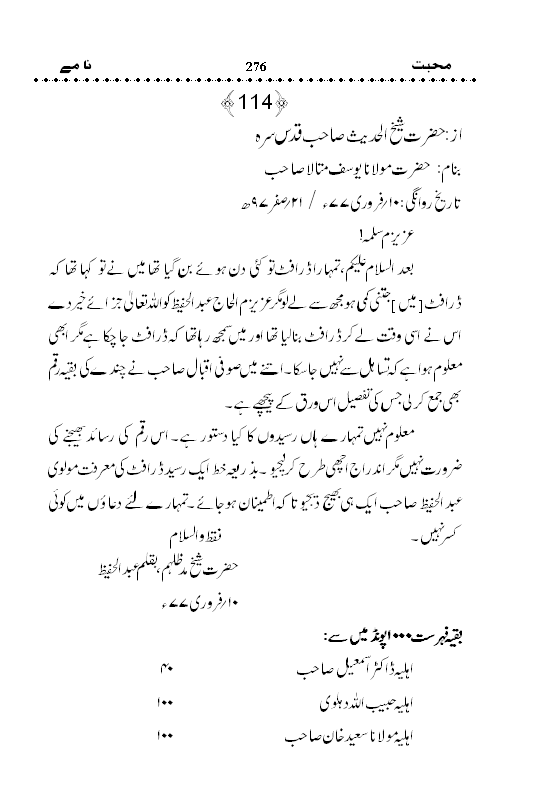 محبت 276 نامے
﴿114﴾
از: حضرت شیخ الحدیث صاحب قدس سرہ
بنام: حضرت مولانا یوسف متالا صاحب
تاریخ روانگی: ۱۰؍فروری ۷۷ء / ۲۱؍صفر ۹۷ھ
عزیزم سلمہ!
بعد السلام علیکم، تمہارا ڈرافٹ تو کئی دن ہوئے بن گیا تھا میں نے تو کہا تھا کہ
ڈرافٹ [میں] جتنی کمی ہو مجھ سے لے لو مگر عزیزم الحاج عبدالحفیظ کو اللہ تعالیٰ جزائے خیر دے
اس نے اسی وقت لے کر ڈرافٹ بنالیا تھا اور میں سمجھ رہا تھا کہ ڈرافٹ جاچکا ہے مگر ابھی
معلوم ہوا ہے کہ تساہل سے نہیں جاسکا۔ اتنے میں صوفی اقبال صاحب نے چندے کی بقیہ رقم
بھی جمع کرلی جس کی تفصیل اس ورق کے پیچھے ہے۔
معلوم نہیں تمہارے ہاں رسیدوں کا کیا دستور ہے۔ اس رقم کی رسائد بھیجنے کی
ضرورت نہیں مگر اندراج اچھی طرح کرلیجیو۔ بذریعہ خط ایک رسید ڈرافٹ کی معرفت مولوی
عبدالحفیظ صاحب ایک ہی بھیج دیجیو تاکہ اطمینان ہوجائے۔ تمہارے لئے دعاؤں میں کوئی
کسر نہیں۔
فقط والسلام
حضرت شیخ مدظلہم، بقلم عبدالحفیظ
۱۰؍فروری ۷۷ء
بقیہ فہرست ۱۰۰۰پونڈ میں سے:
اہلیہ ڈاکٹر اسمعیل صاحب ۴۰
اہلیہ حبیب اللہ دہلوی ۱۰۰
اہلیہ مولانا سعید خان صاحب ۱۰۰